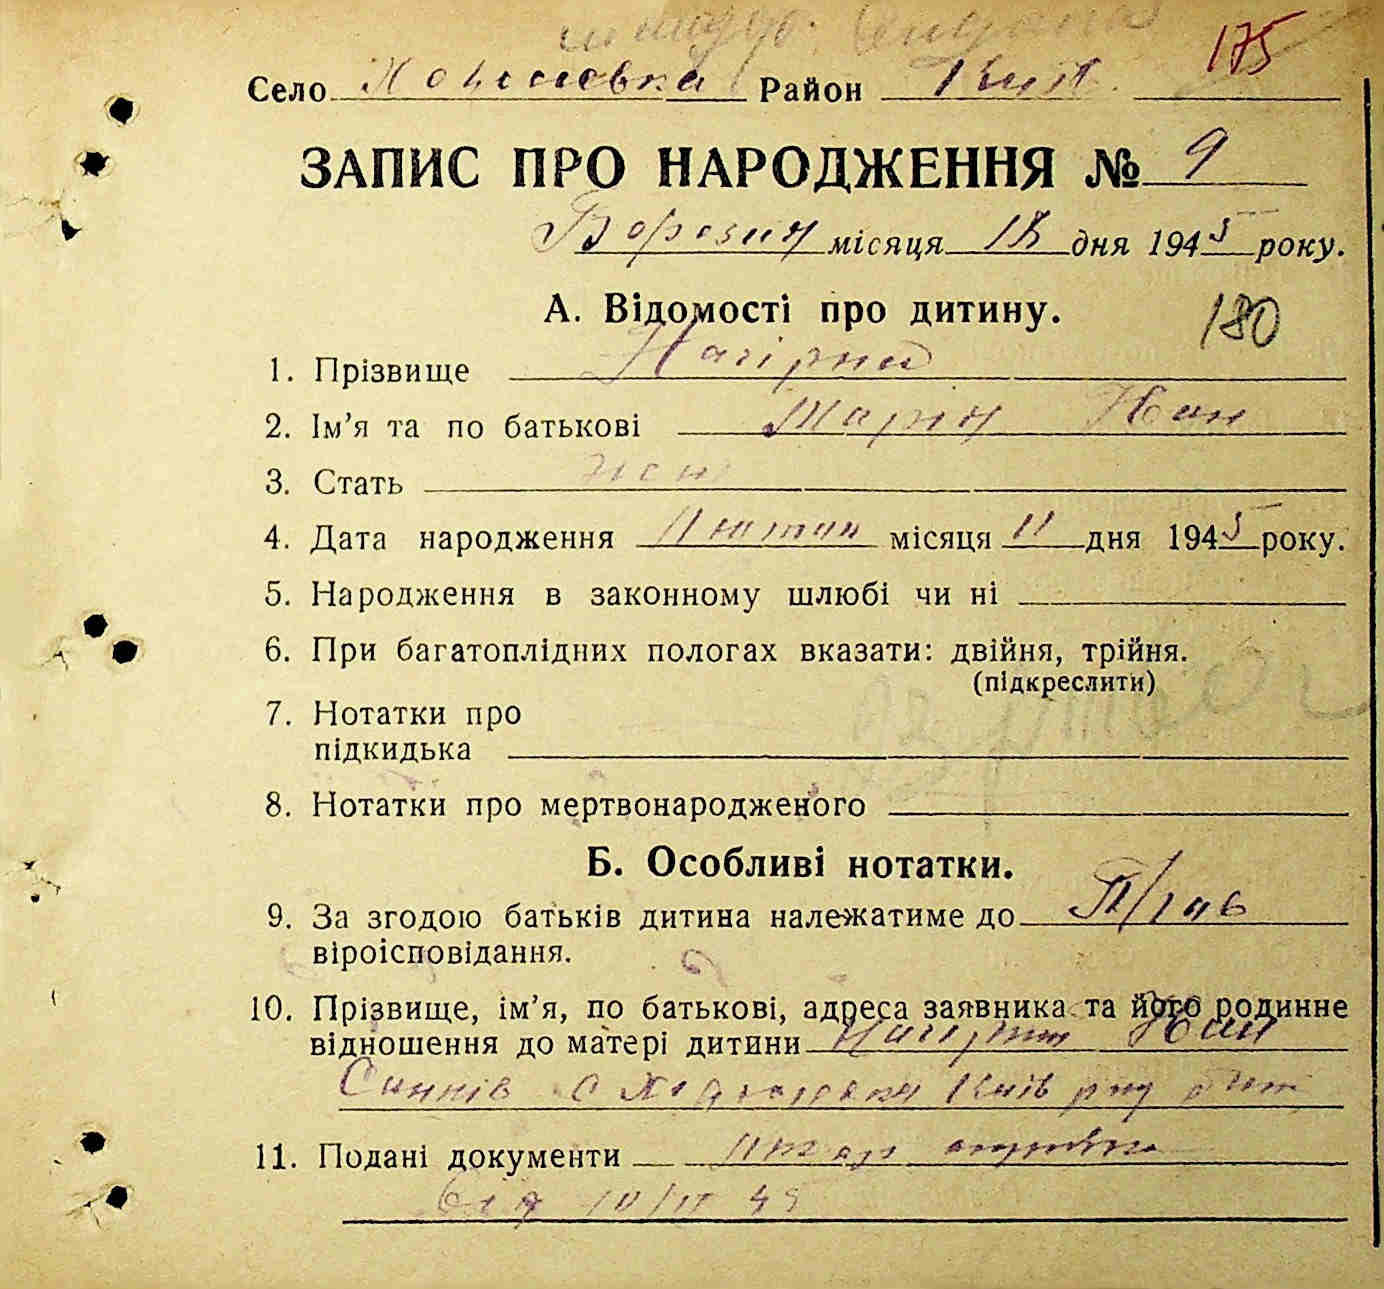 175
Село Район Київ.
ЗАПИС ПРО НАРОДЖЕННЯ № 9
Березня місяця 18 дня 1945 року.
А. Відомості про дитину.
180
1. Прізвище Нагірна
2. Ім’я та по батькові Марія Іван
3. Стать жен
4. Дата народження Лютий місяця 11 дня 1945 року.
5. Народження в законному шлюбі чи ні
6. При багатоплідних пологах вказати: двійня, трійня.
(підкреслити)
7. Нотатки про
підкидька
8. Нотатки про мертвонародженого
Б. Особливі нотатки.
9. За згодою батьків дитина належатиме до П/рав
віроісповідання.
10. Прізвище, ім’я, по батькові, адреса заявника та його родинне
відношення до матері дитини Нагірний Іван
Київ
11. Подані документи
від 45